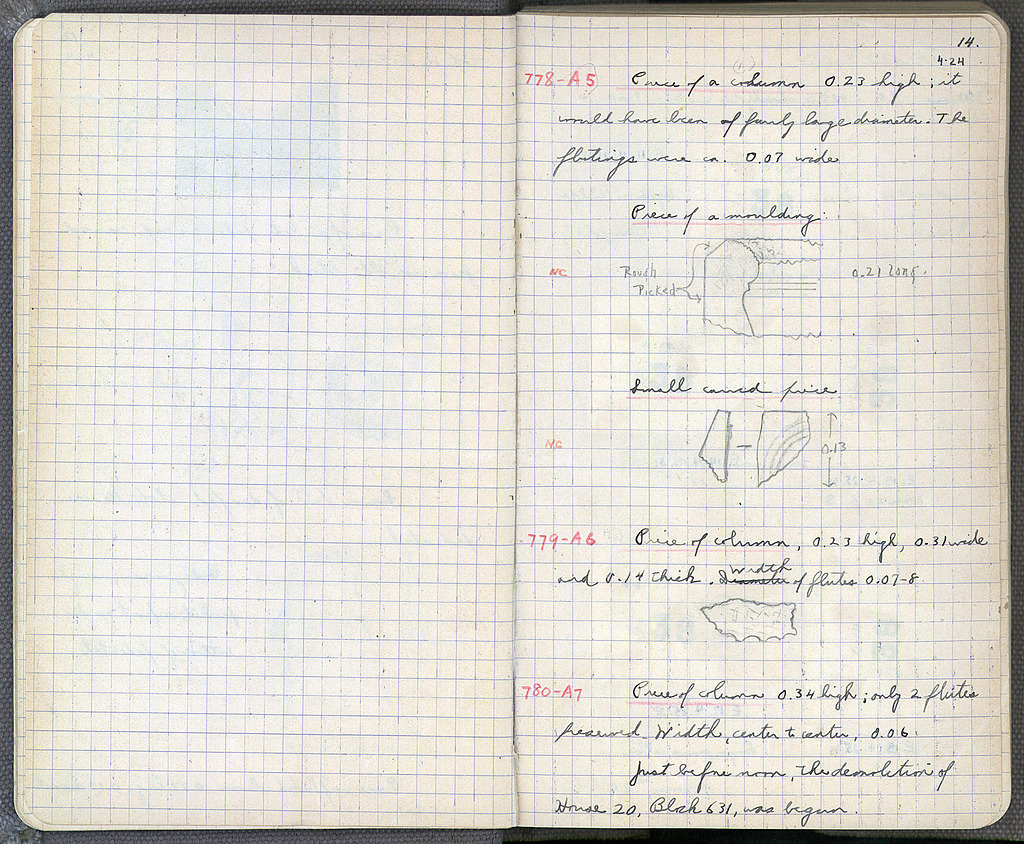 14.
4.24
778-A5 Piece of a column 0.23 high; it
would have been of fairly large diameter. The
flutings were ca. 0.07 wide
Piece of a moulding.
NC Rough 0.21 long.
Picked
Small carved piece
NC 0.13
779-A6 Piece of column, 0.23 high, 0.31 wide
Width
and 0.14 thick. Diameter of flutes 0.07-8
780-A7 Piece of column 0.34 high; only 2 flutes
preserved. Width, center to center, 0.06.
Just before noon, the demolition of
House 20, Block 631, was begun.